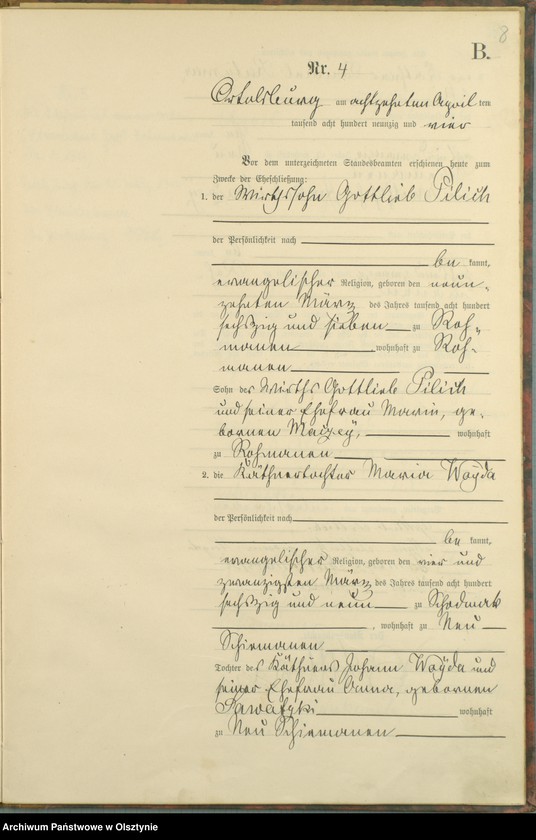 8
B.
Nr. 4
Ortelsburg am achtzehnten April ten
tausend acht hundert neunzig und vier
Vor dem unterzeichneten Standesbeamten erschienen heute zum
Zwecke der Eheschließung:
1. der Wirthssohn Gottlieb Pilich
der Persönlichkeit nach
be kannt,
evangelischer Religion, geboren den neun-
zehnten März des Jahres tausend acht hundert
sechszig und sieben zu Roh-
manen, wohnhaft zu Roh-
manen
Sohn des Wirths Gottlieb Pilich
und seiner Ehefrau Marie, ge-
bornen wohnhaft
zu Rohmanen
2. die Käthnertochter Maria Woyda
der Persönlichkeit nach
be kannt,
evangelischer Religion, geboren den vier und
zwanzigsten März des Jahres tausend acht hundert
sechszig und neun zu Schodmak
, wohnhaft zu Neu
Schiemanen
Tochter des Käthners Johann Woyda und
seiner Ehefrau Anna, gebornen
wohnhaft
zu Neu Schiemanen
Archiwum Państwowe w Olsztynie